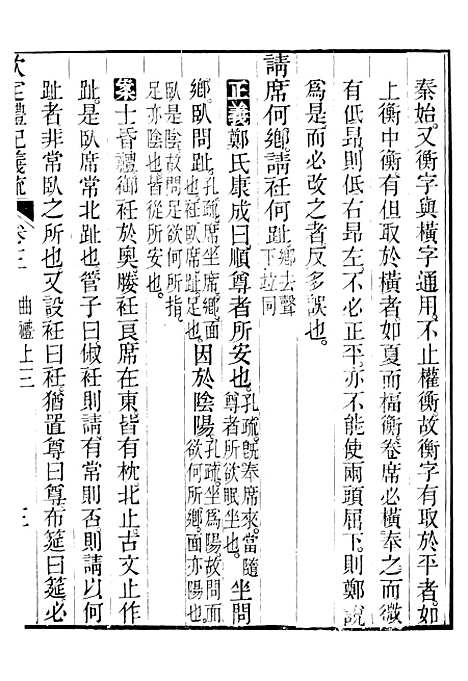 秦始又衡字與橫字通用不止權衡故衡字有取於平者如
上衡中衡有但取於橫者如夏而楅衡卷席必橫奉之而微
有低昂則低右昂左不必正平亦不能使兩頭屈下則鄭說
為是而必改之者反多誤也
請席何鄉請衽何趾鄉去聲下竝同
正義鄭氏康成曰順尊者所安也孔疏旣奉席來當隨尊者所欲眠坐也坐問
鄉臥問趾孔疏席坐席鄉面也衽臥席趾足也因於陰陽孔疏坐為陽故問面欲何所鄉面亦陽也
臥是陰故問足欲何所指足亦陰也皆從所安也
案士昏禮御衽於奧媵衽良席在東皆有枕北止古文止作
趾是臥席常北趾也管子曰俶衽則請有常則否則請以何
趾者非常臥之所也又設衽曰衽猶置尊曰尊布筵曰筵必
欽定禮記義疏 卷三 曲禮上三 三